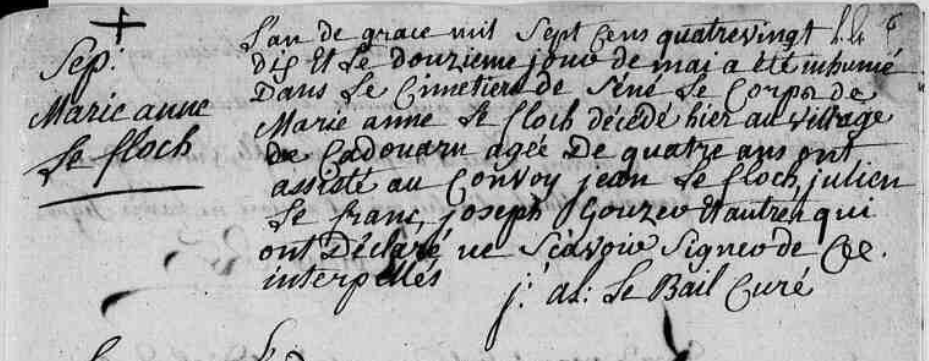 Sep:
Marie anne
Le floch
L'an de grace mil Sept Cens quatrevingt
dix Et Le douzieme jour de mai a été inhumé
Dans Le Cimetiere de Séné Le Corps de
Marie anne Le floch décédé hier au village
de Cadouarn agée De quatre ans ont
assisté au Convoy jean Le floch, julien
Le franc, joseph Gouzer Et autres qui
ont Déclaré ne Scavoir Signer de Ce.
interpellés
j: as: Le Bail Curé